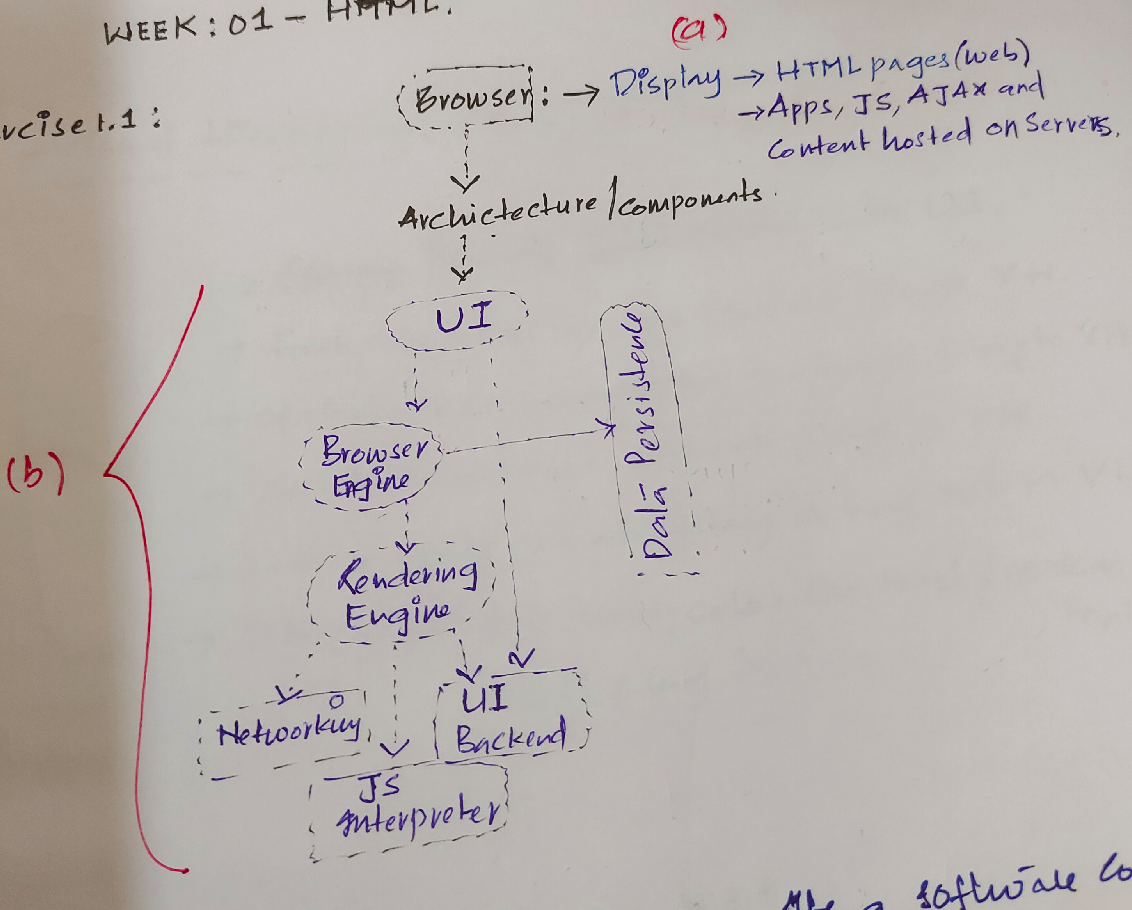 WEEK: 01 - HTML.
(a)
Browser: → Display → HTML pages (web)
→ Apps, JS, AJAX and
Content hosted on Servers.
rcise 1.1:
Archictecture/components.
UI
Data Persistence
(b)
Browser
Engine
Rendering
Engine
Networking
UI
Backend
JS
Interpreter
software